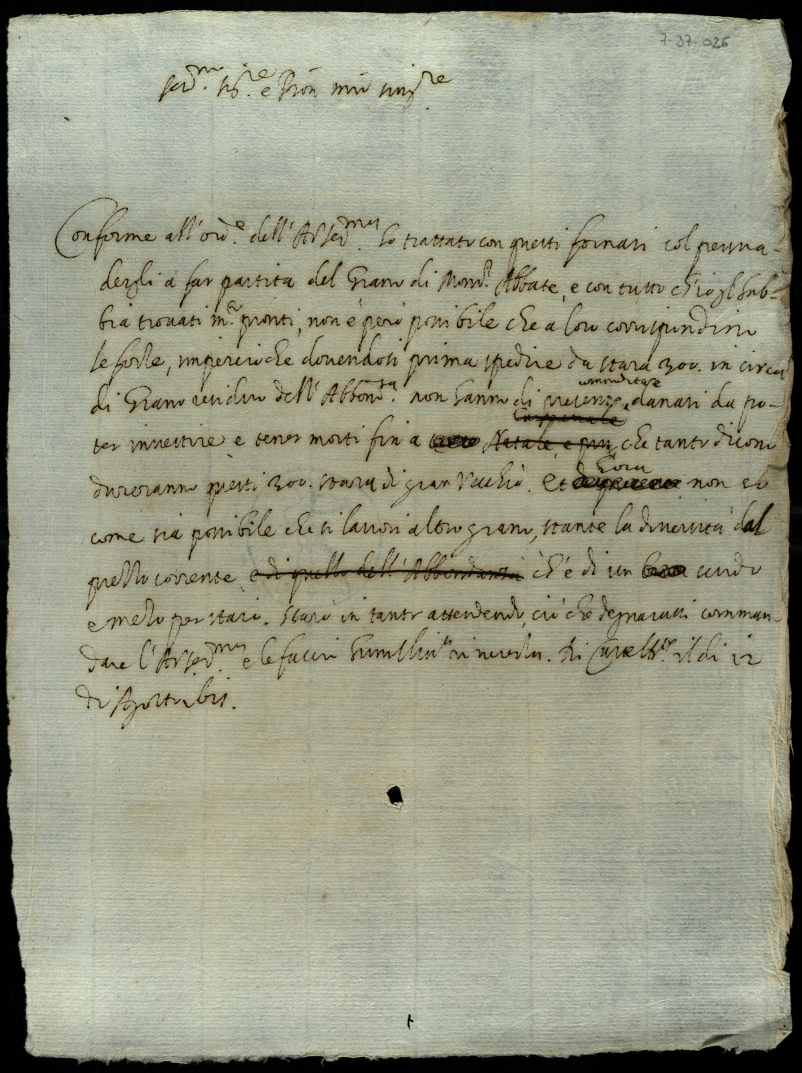 7-37-026
Ser.mo Sig.re e Pron mio sing.re
Conforme all' ord.e dell' A.V.Ser.ma ho trattato con questi fornari col persua-
dergli a far partita del Grano di Mons.r Abbate, e con tutto ch'io gl'hab-
bia trovati pronti, non è però possibile che a loro corrispondino
le forze, imperciò che dovendosi prima spedire da stara 300. in circa
di Grano residuo dell' Abbon.za non hanno di
commoditare
danari da po-
ter investire e tener morti fin a Natale, e più, che tanto dicono
dureranno questi 300. stara di gran Vecchio. Et hora non so
come sia possibile che si lavori altro grano, stante la diversità dal
prezzo corrente e di quello dell' Abbondanza ch'è di un scudo
e mezzo per staro. Starò in tanto attendendo, ciò che degnarassi comman-
dare l' A.V.Ser.ma e le faccio humiliss.a riverenza. Di il di 12
di Agosto